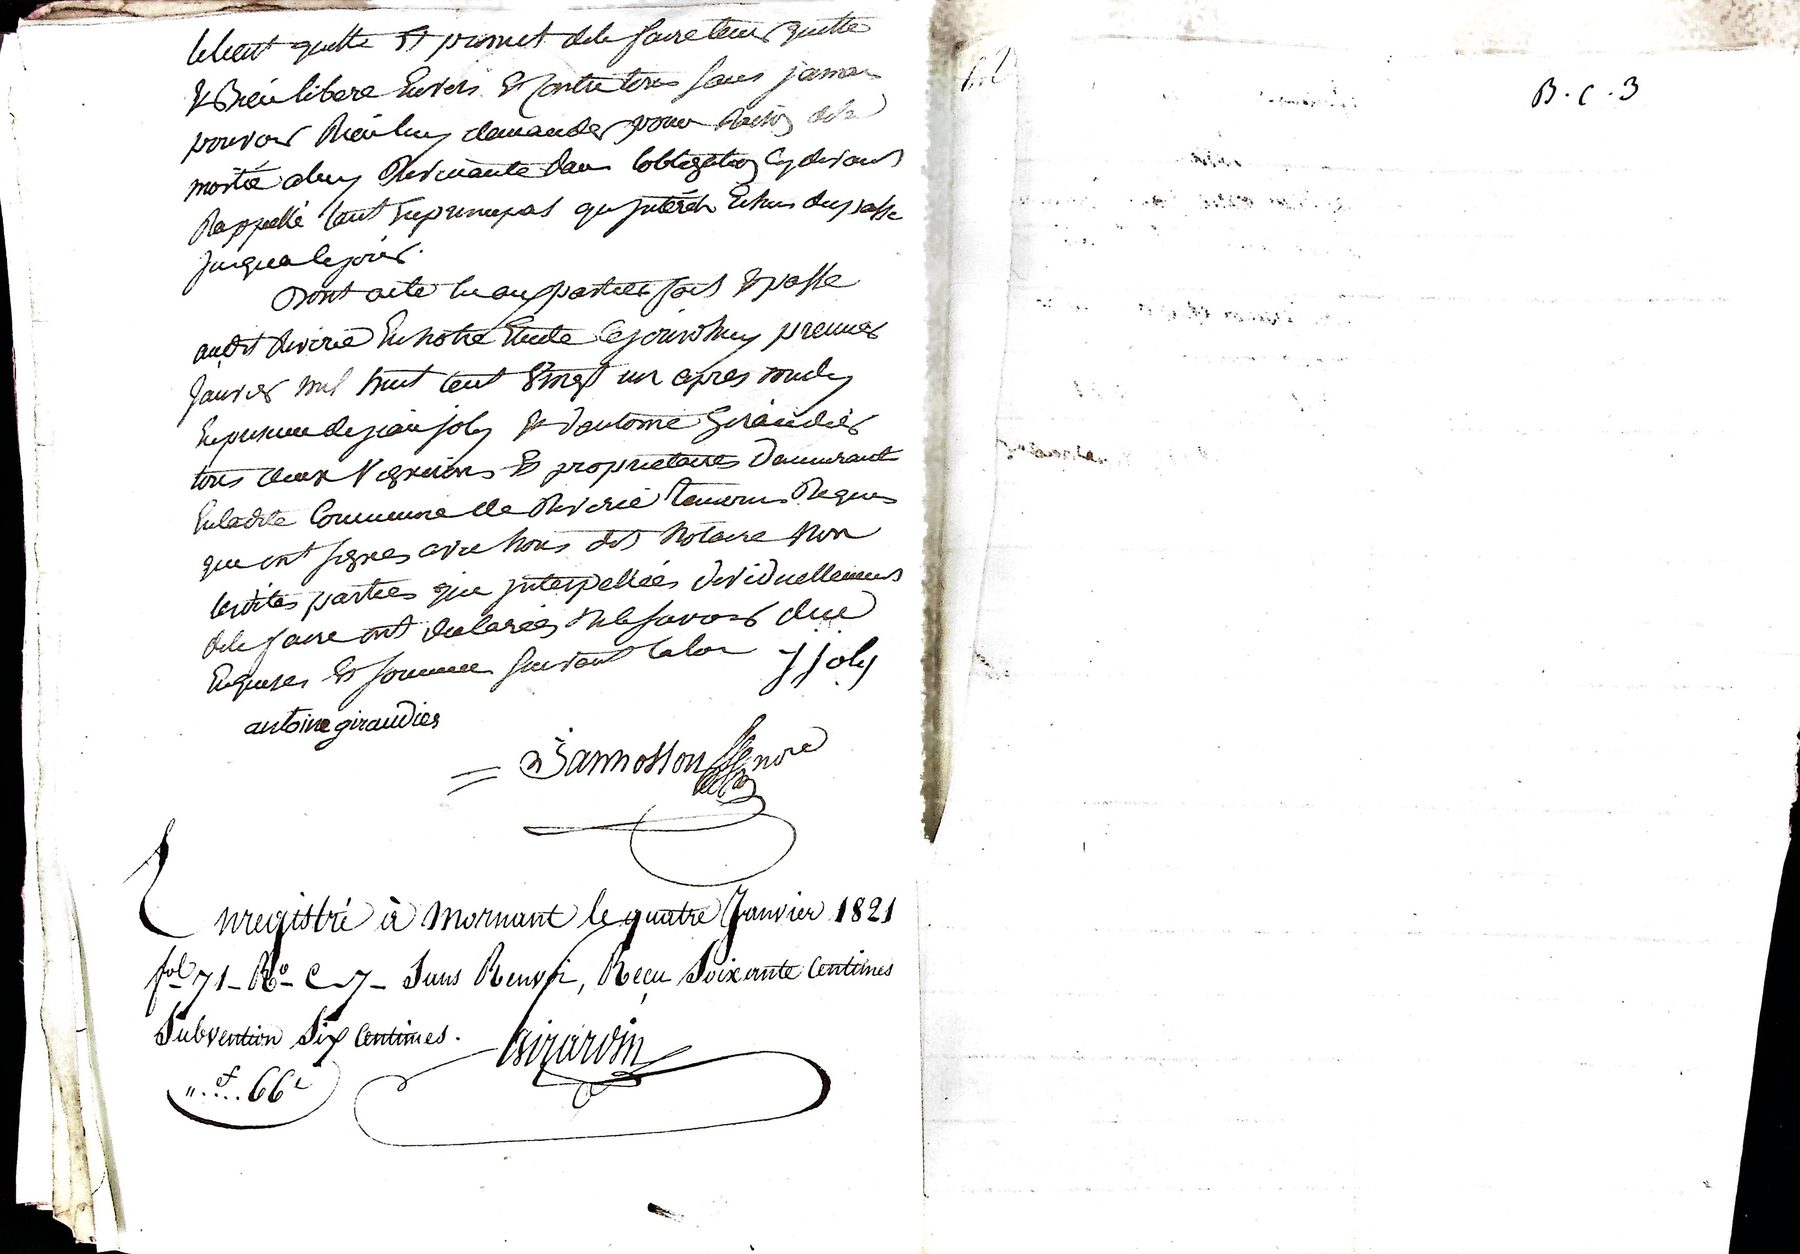 le tient quitte et promet de le faire tenir quitte
et Bien libere Envers et Contre tous sans jamais
pouvoir Rien luy demander pour Raison de la
moitié a luy Revenante dans lobligation Cy devant
Rappellé tant En principal qu jnterêt Echus du passe
jusqua le jour.
Dont acte lu aux parties fait et passe
audit Riverie En notre Etude Cejourdhuy premier
janvier mil huit Cent vingt un apres midy
En presence de jean joly et dantoine Giraudier
tous deux Vignerons et propriétaires demeurant
En ladite Commune de Riverie temoins Requis
qui ont signes avec nous dit Notaire Non
lesdites parties qui jnterpellées dividuellement
de le faire ont declarées Ne le savoir de ce
Enquises et sommee suivant la loi j joly
antoine giraudier
Jannosson nore
Enregistré à Mornant le quatre Janvier 1821
fol. 71 - Ro - C - 7 - Sans Renvoi, Reçu Soixante Centimes
Subvention Six Centimes. Girardin
"..f.. 66c
B. C. 3